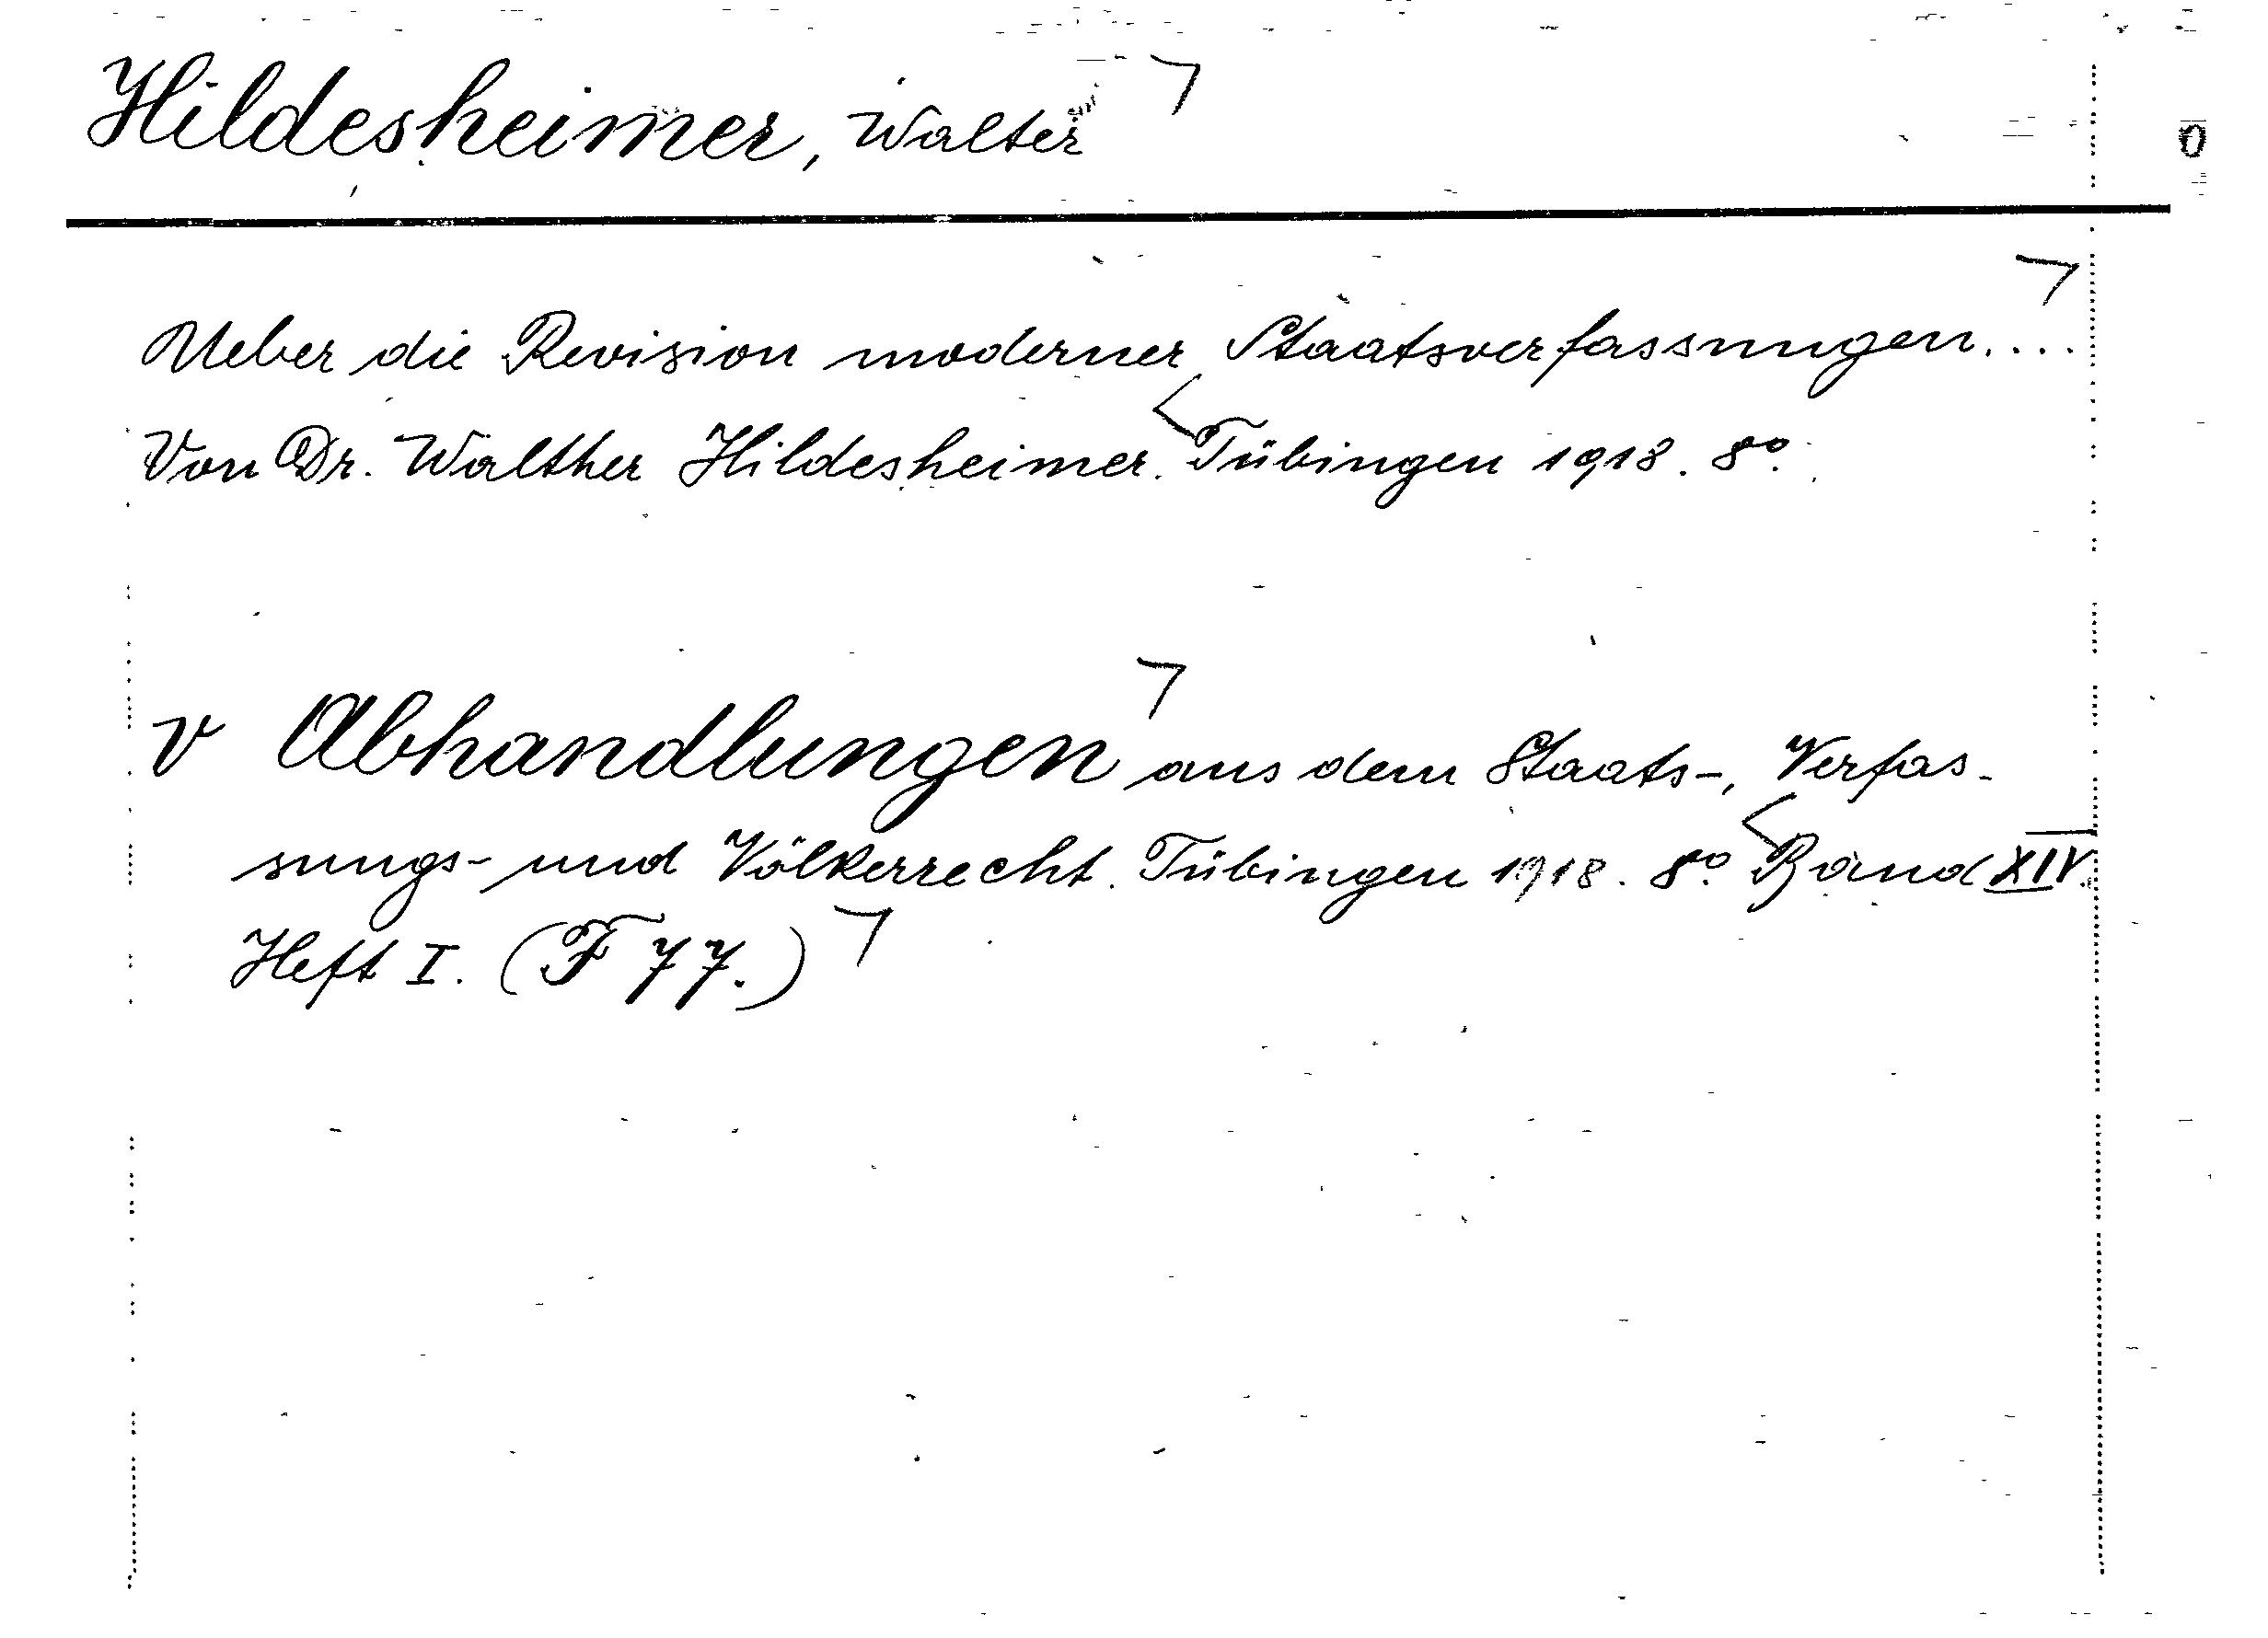 Hildesheimer, Walter
Ueber die Revision moderner Staatsverfassungen....
Von Dr. Walther Hildesheimer. Tübingen 1918. 8º.
v Abhandlungen aus dem Staats-, Verfas-
sungs- und Völkerrecht. Tübingen 1918. 8º. Band XIV.
Heft I. (F 77.)